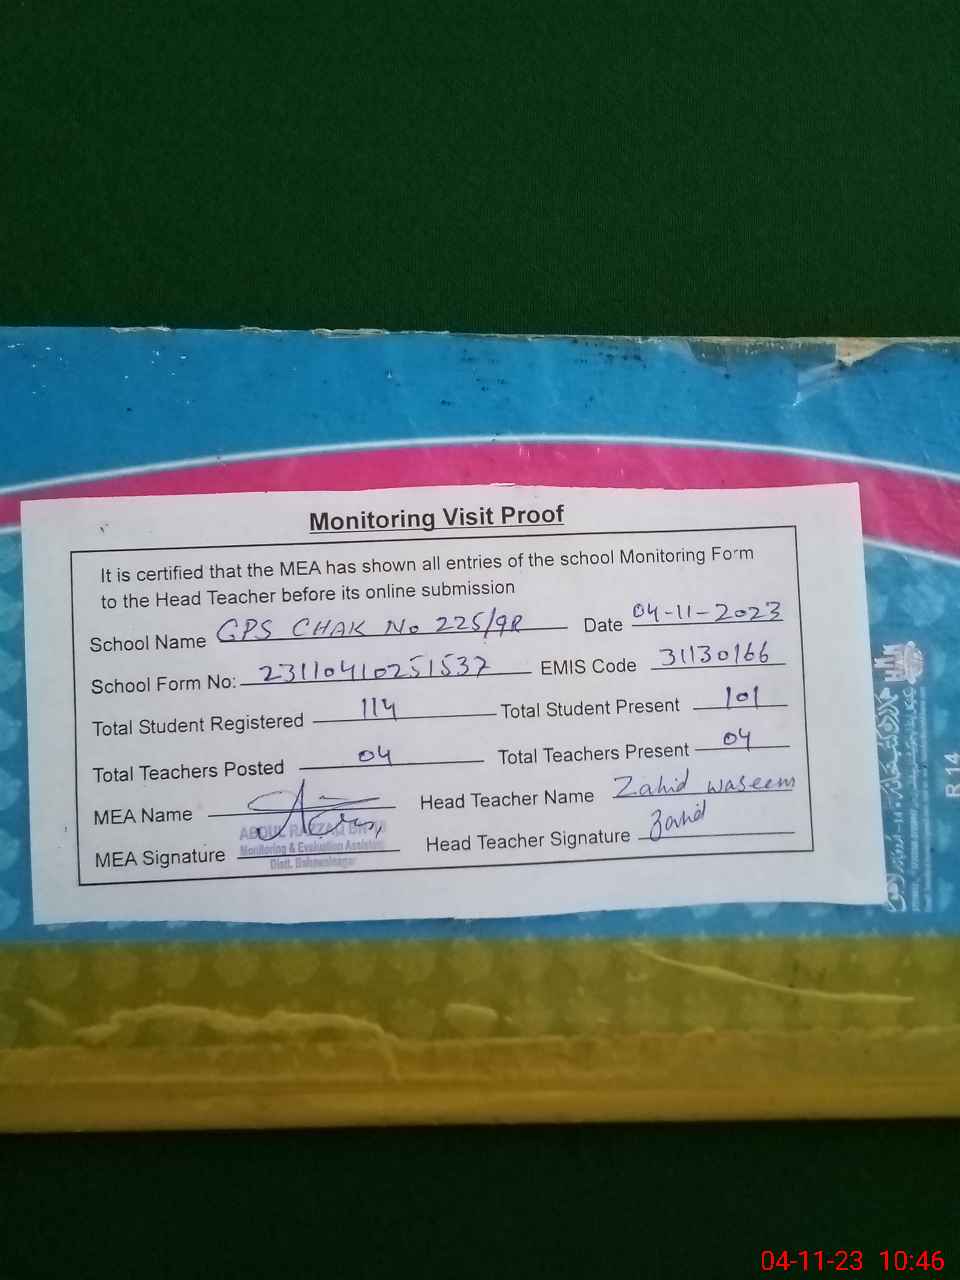 Monitoring Visit Proof
It is certified that the MEA has shown all entries of the school Monitoring Form
to the Head Teacher before its online submission
School Name GPS CHAK No 225/9R Date 04-11-2023
School Form No: 23110410251537 EMIS Code 31130166
Total Student Registered 114 Total Student Present 101
Total Teachers Posted 04 Total Teachers Present 04
MEA Name Head Teacher Name Zahid waseem
MEA Signature Head Teacher Signature Zahid
ABDUL RAZZAQ
Monitoring & Evaluation Assistant
Distt. Bahawalnagar
R.14
04-11-23 10:46